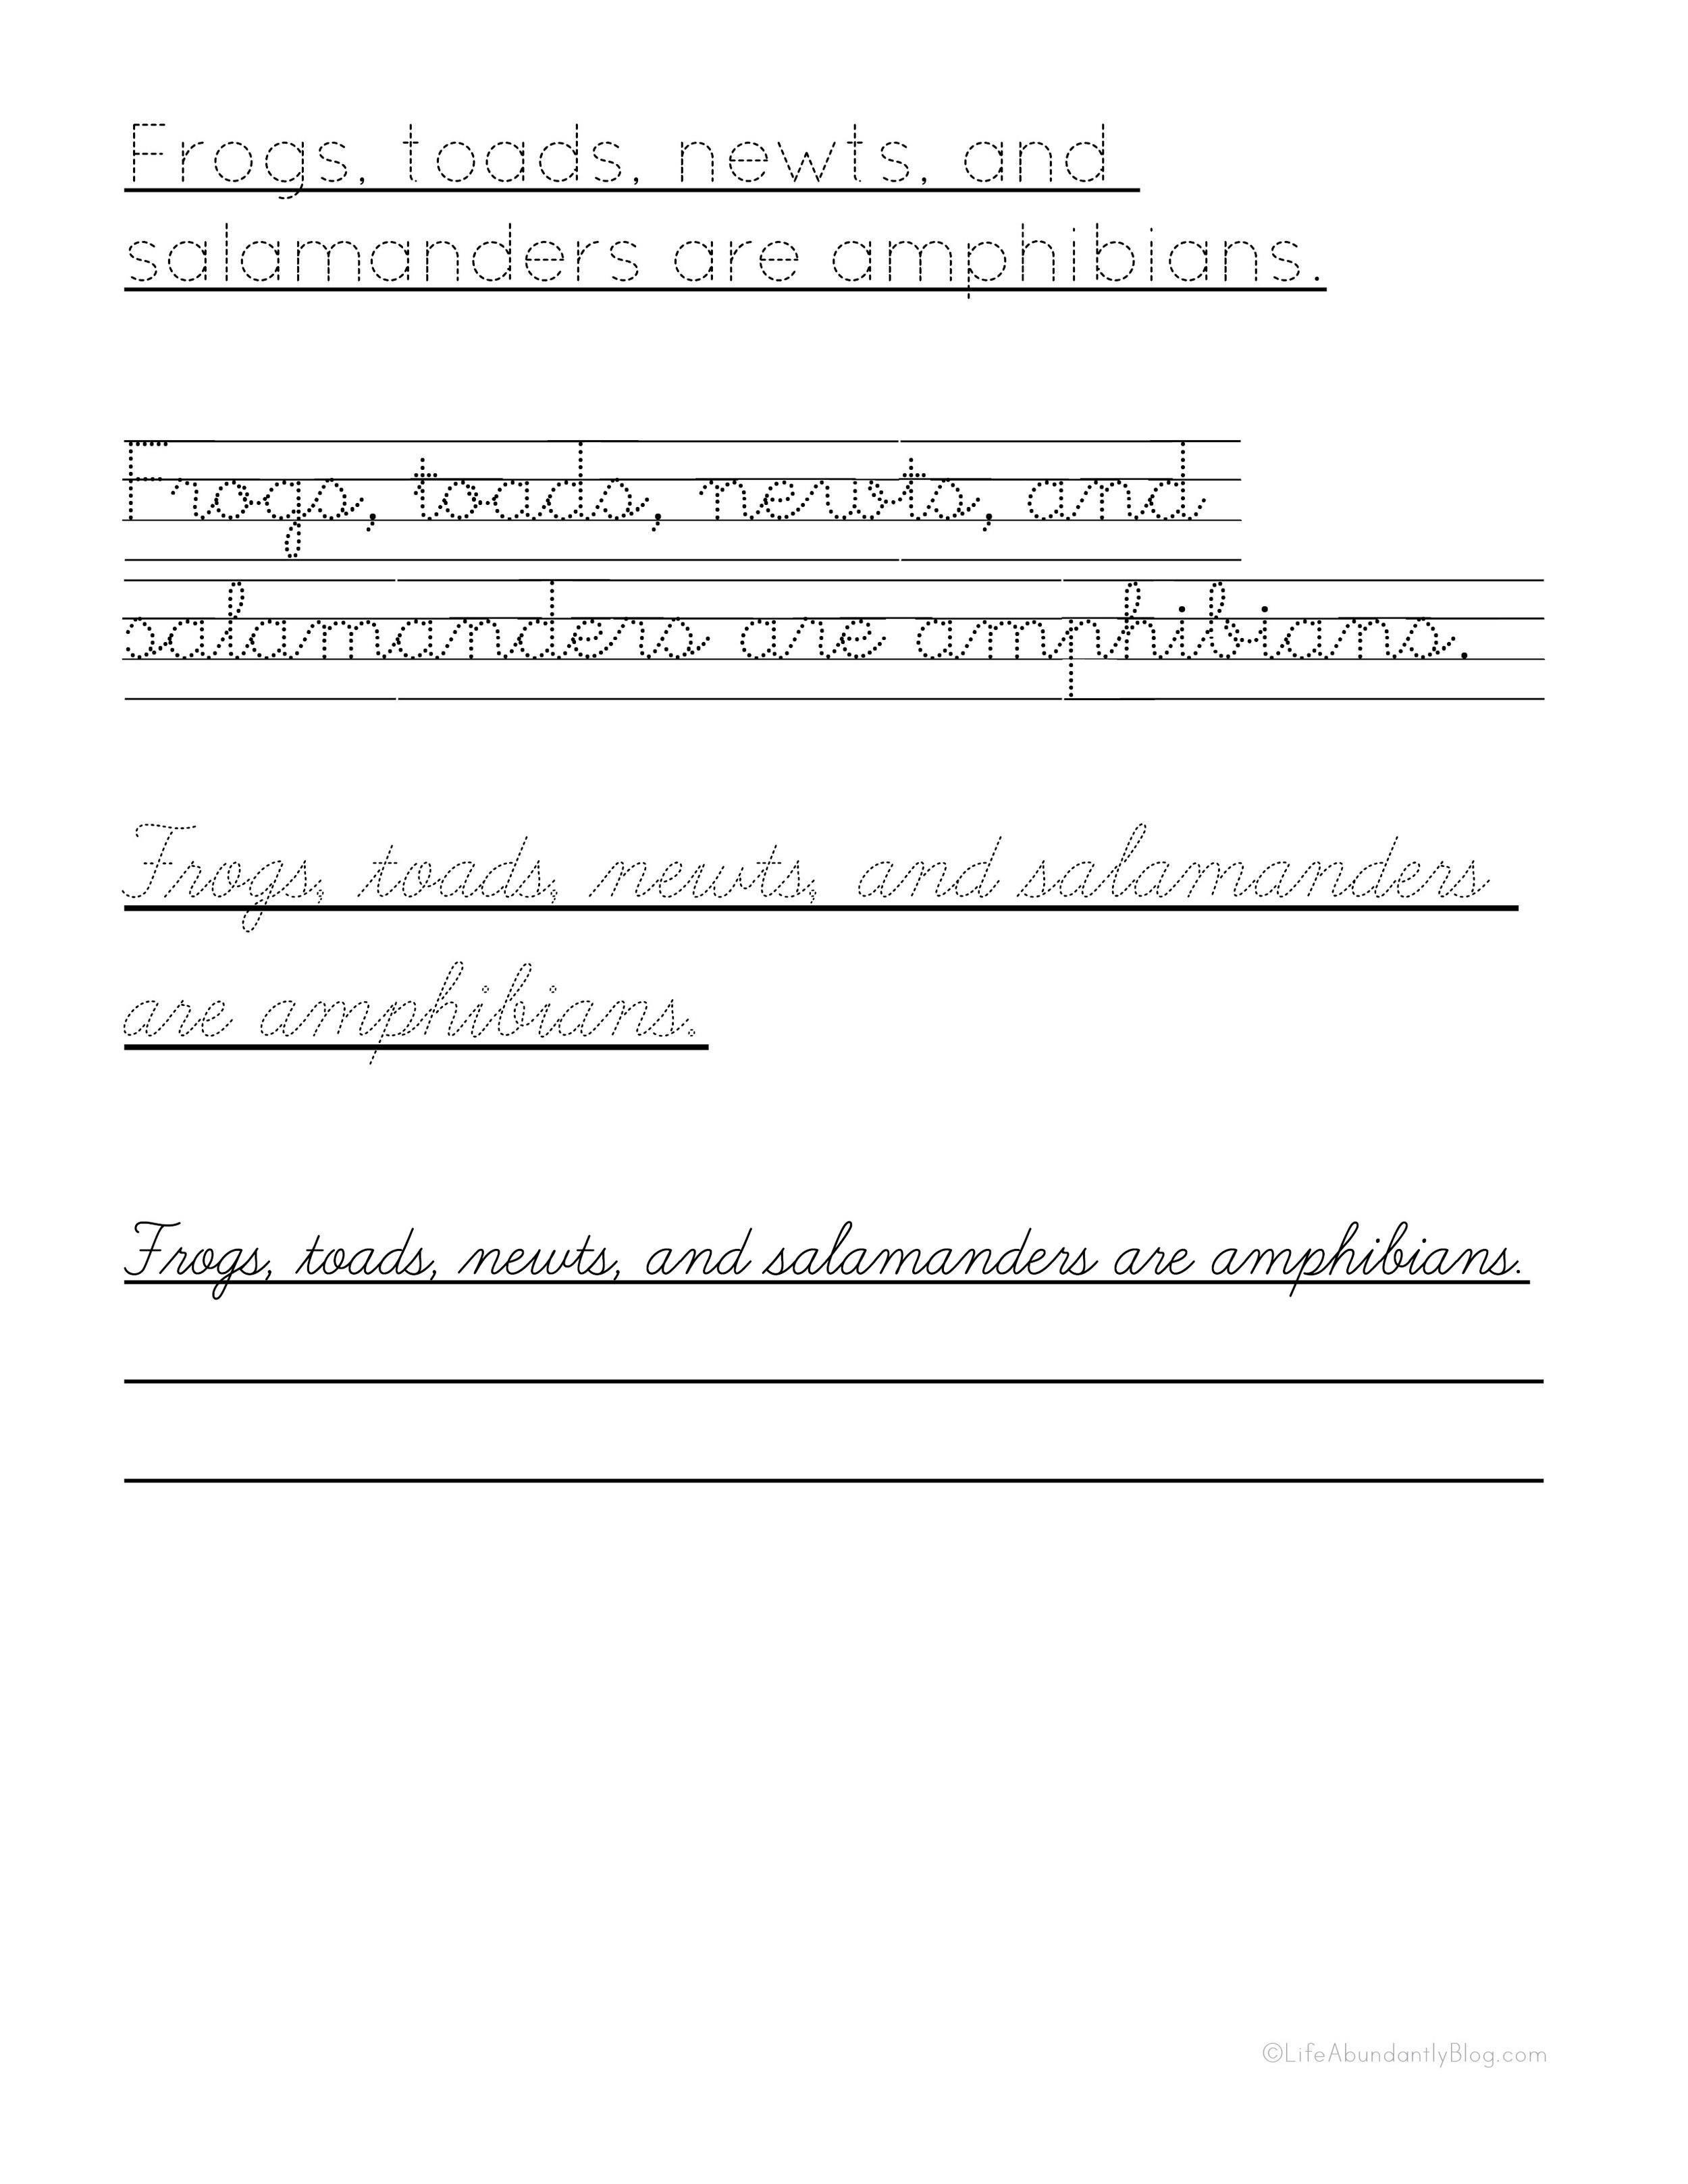 Frogs, toads, newts, and
salamanders are amphibians.
Frogs, toads, newts, and
salamanders are amphibians.
Frogs, toads, newts, and salamanders
are amphibians.
Frogs, toads, newts, and salamanders are amphibians.
©LifeAbundantlyBlog.com